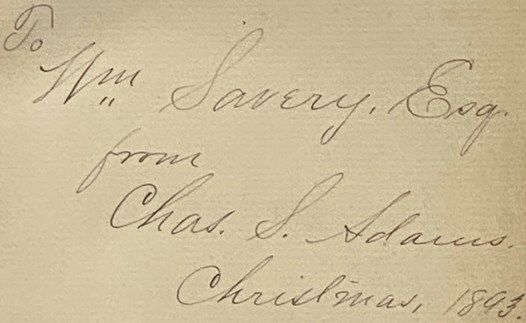 To
Wm Savery, Esq.
from
Chas. S. Adams.
Christmas, 1893.